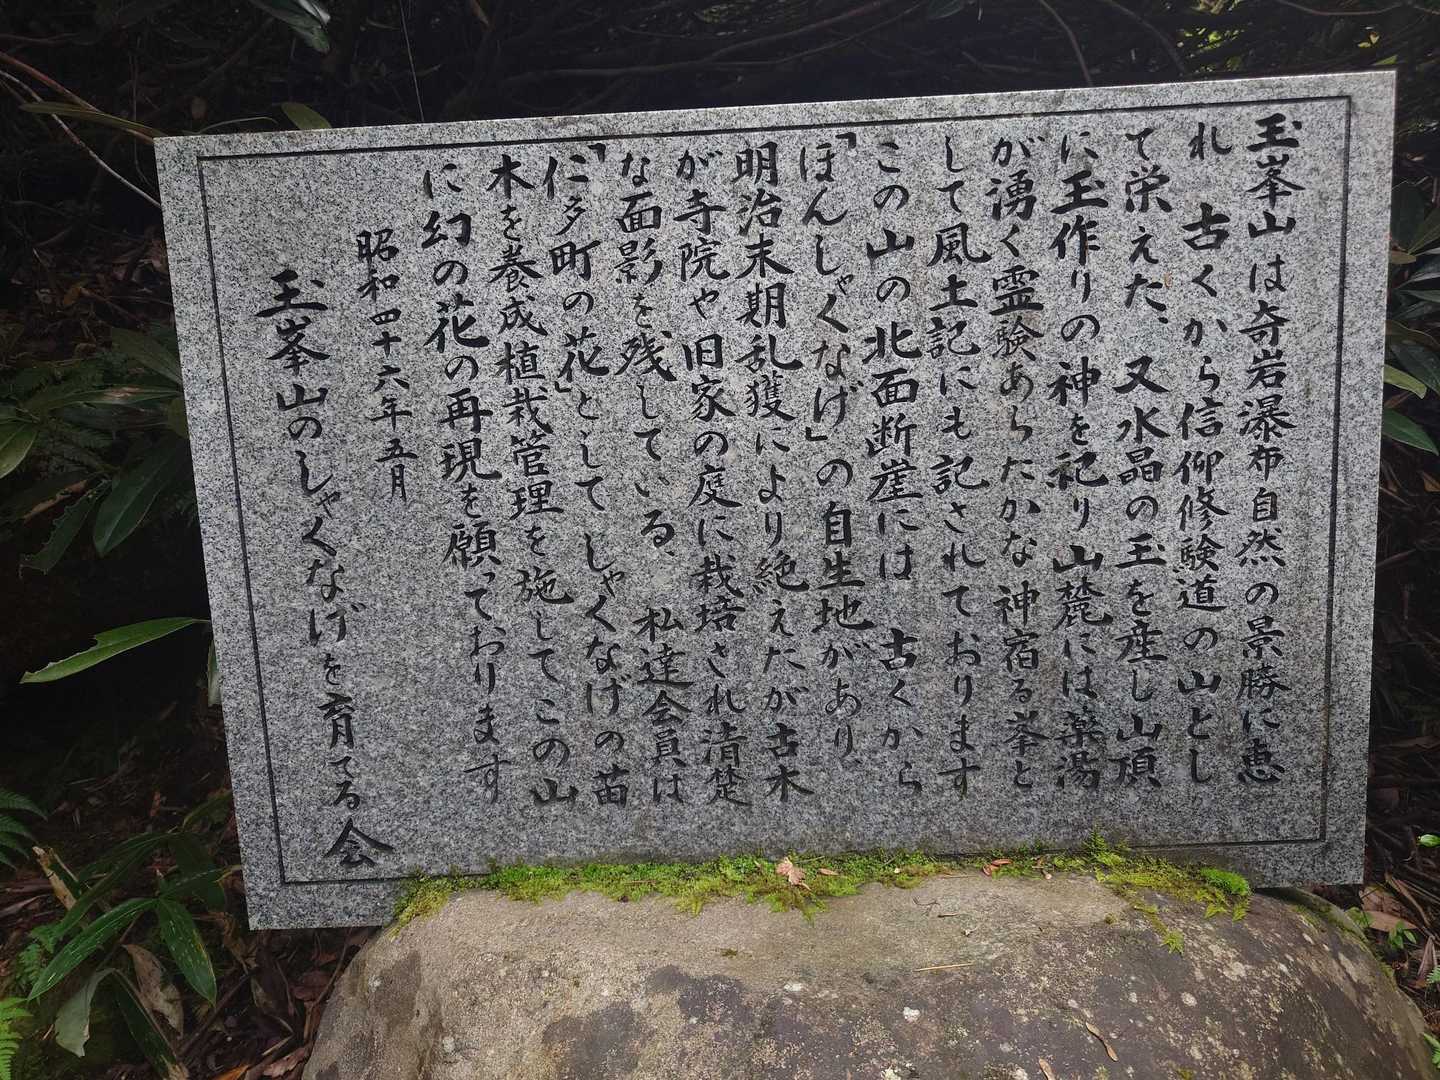 玉峯山は奇岩瀑布自然の景勝に恵
れ 古くから信仰修験道の山とし
て栄えた、又水晶の玉を産し山頂
に玉作りの神を祀り山麓には薬湯
が湧く霊験あらたかな神宿る峯と
して風土記にも記されております
この山の北面断崖には 古くから
「ほんしゃくなげ」の自生地があり、
明治末期乱獲により絶えたが古木
が寺院や旧家の庭に栽培され清楚
な面影を残している、私達会員は
「仁多町の花」としてしゃくなげの苗
木を養成植栽管理を施してこの山
に幻の花の再現を願っております
昭和四十六年五月
玉峯山のしゃくなげを育てる会